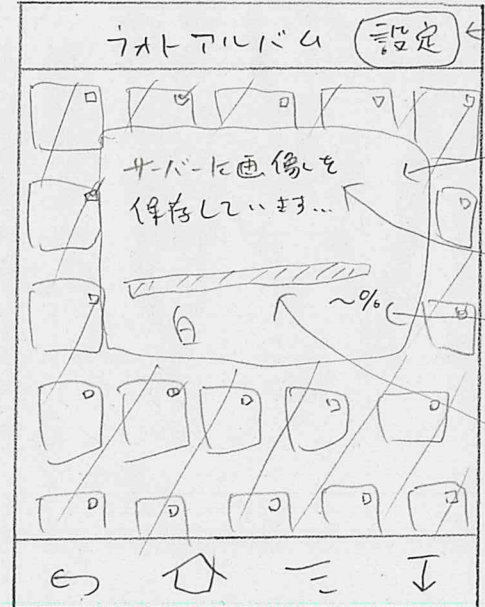 フォトアルバム
設定
サーバーに画像を
保存しています…
~%